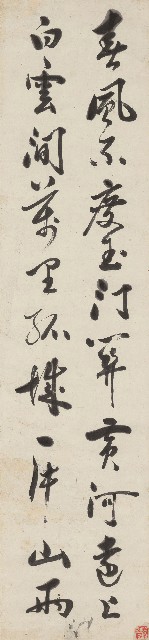 春風不度玉門關黃河遠上
白雲間萬里孤城一片山